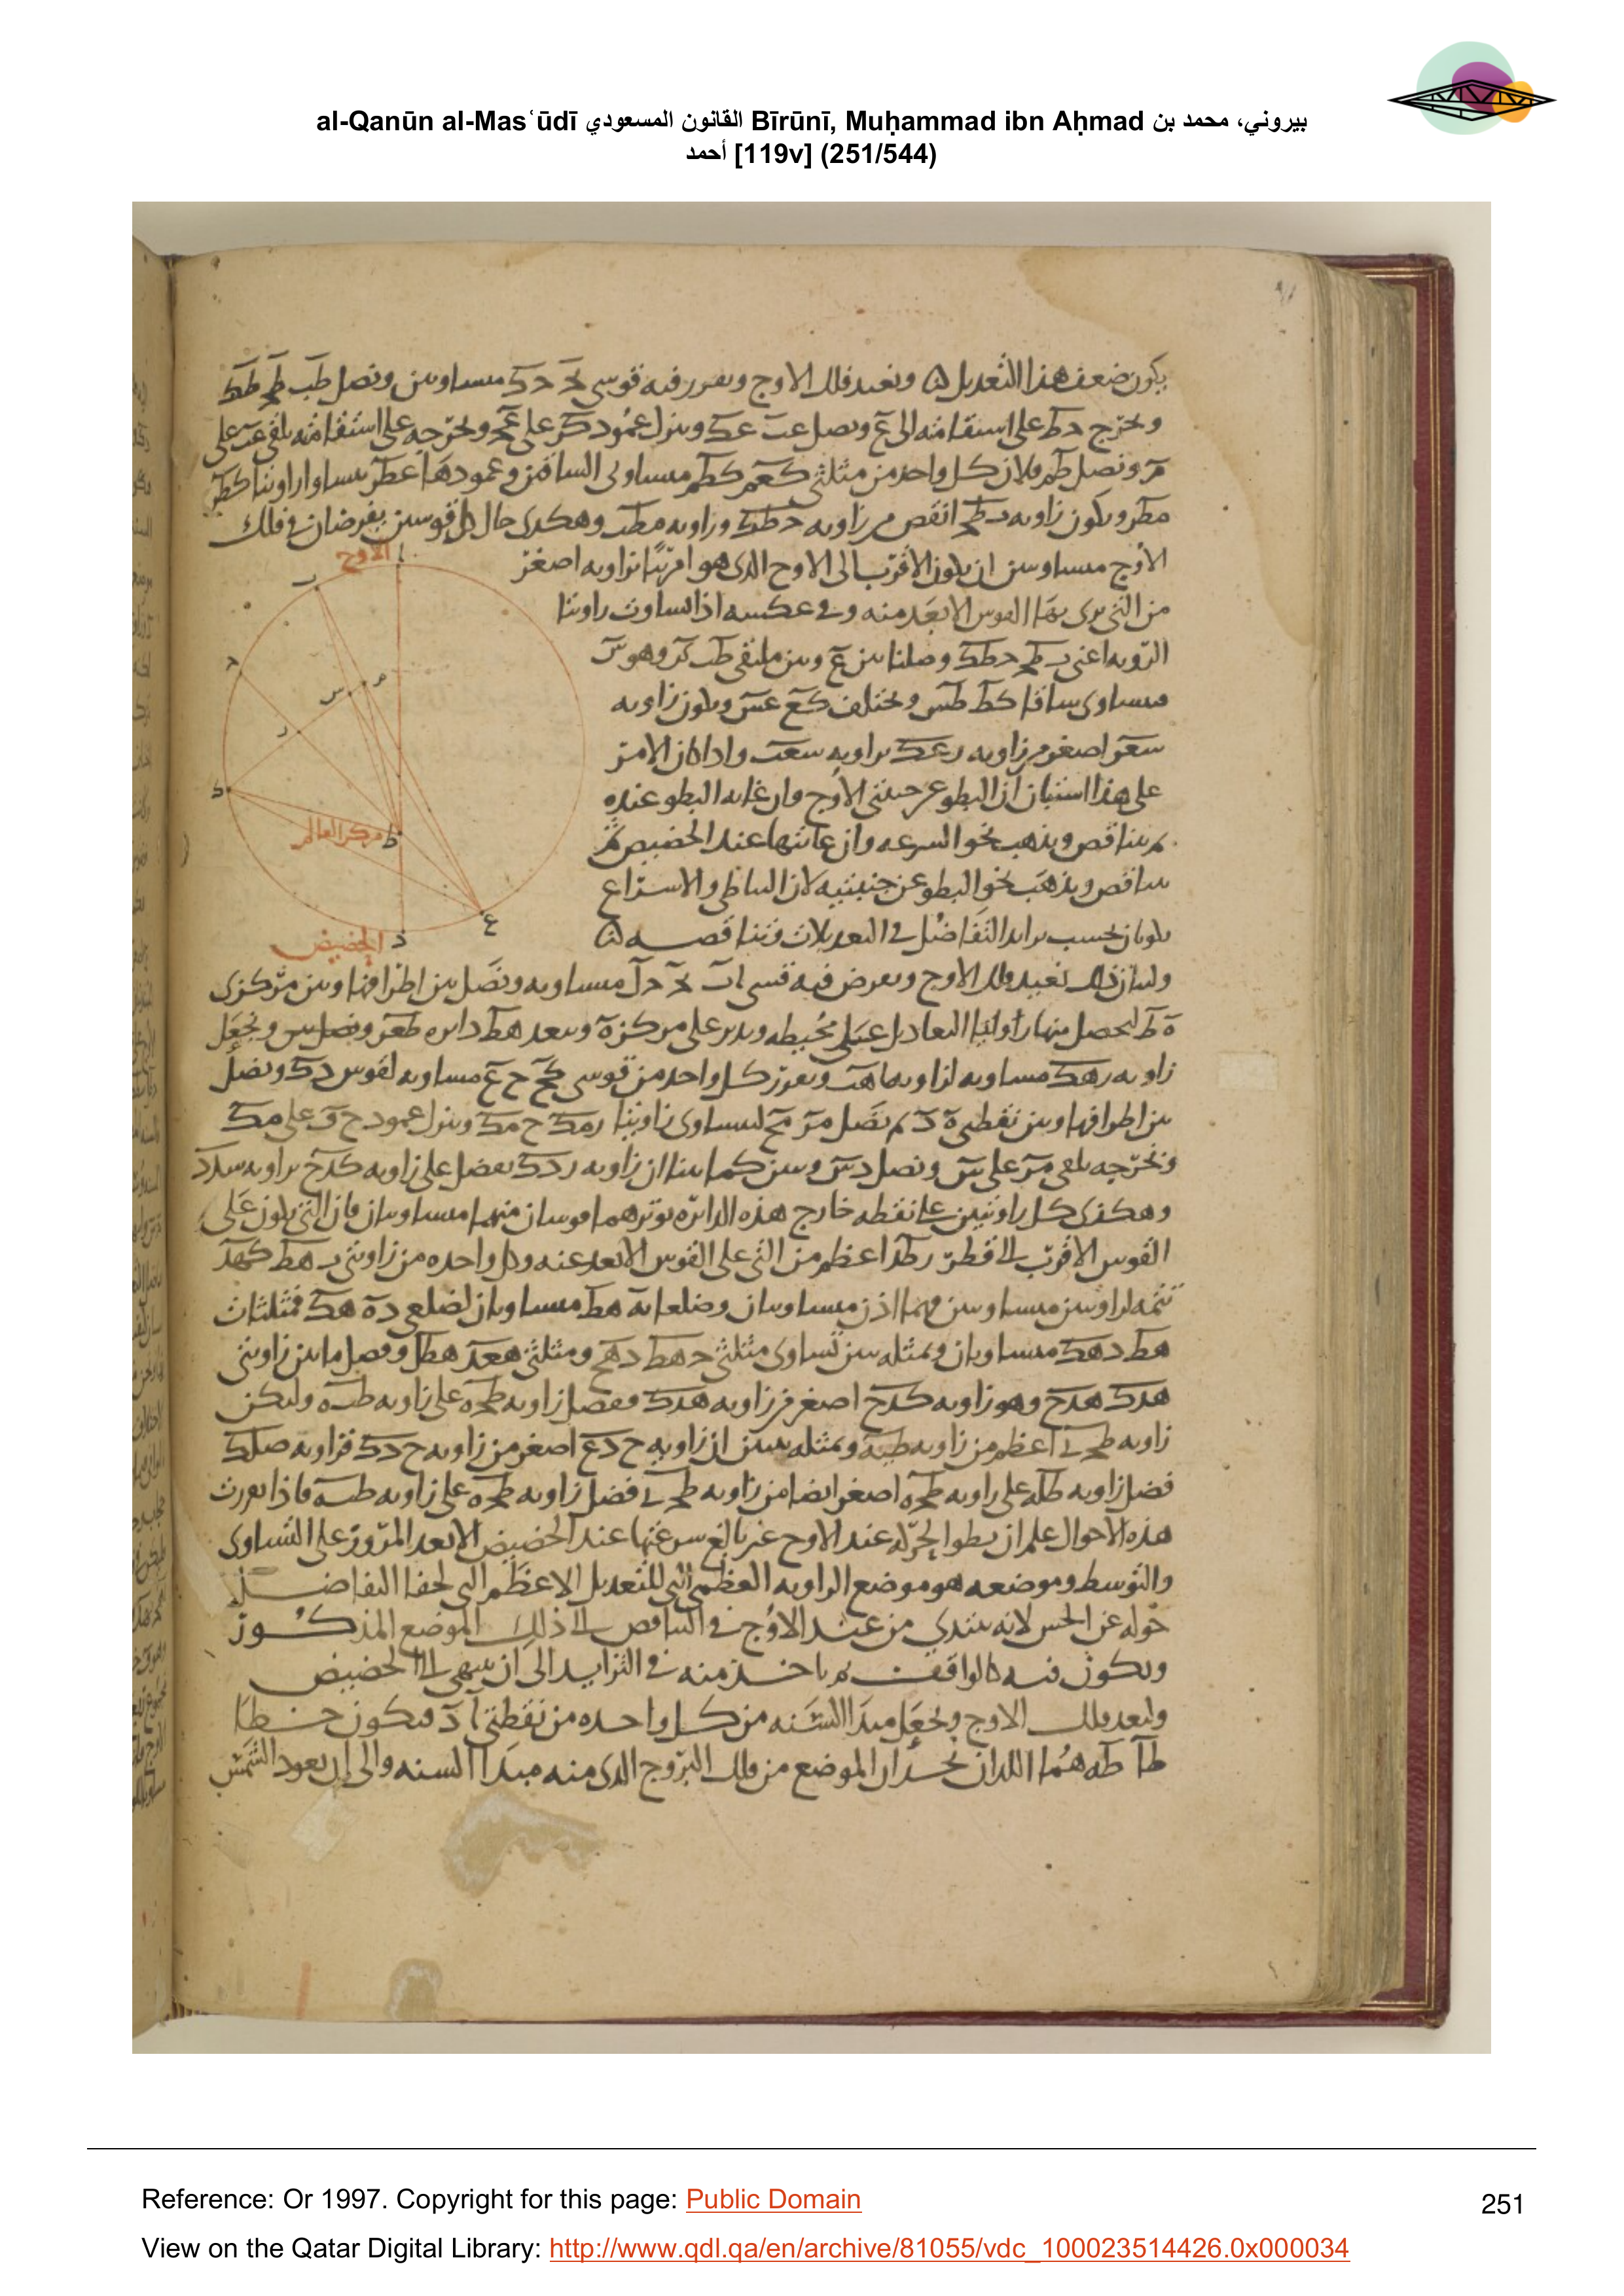 al-Qanūn al-Masʿūdī القانون المسعودي Bīrūnī, Muḥammad ibn Aḥmad بيروني، محمد بن
أحمد [119v] (251/544)
يكون ضعف هذا التعديل ونعيد فلك الاوج ونفرز فيه قوسى حد دك متساويتين ونصل طب طح طك
ونخرج دط على استقامته الى ع ونصل عب عك وننزل عمود كر على عح ونخرجه على استقامته يلقى عب على
م ونصل طم فلان كل واحد من مثلثى كعم كطم متساوى الساقين وعمودها عطر يساوا زاويتا كطر
مطر ويكون زاويه بطح انقص من زاويه حطك وزاويه مطب وهكذى حال كل قوسين يفرضان فى فلك
الاوج
الاوج متساويتين ان يكون الاقرب الى الاوج الذى هو ا مرئيا بزاويه اصغر
من التى يرى بها القوس الابعد منه وفى عكسه اذا تساوت زاويتا
الرويه اعنى بطح دطك وصلنا بين ع وبين ملتقى طب كر وهو س
فيساوى ساقا كط طس ويختلف كع عس ويكون زاويه
سعر اصغر من زاويه رعك بزاويه سعب واذا كان الامر
على هذا استبان ان البطو عن جنبتى الاوج وان غايه البطو عنده
ثم يتناقص ويذهب نحو السرعه وان غايتها عند الحضيض ثم
يتناقص ويذهب نحو البطو عن جنبتيه لان التباطى والاسراع
يكونان بحسب تزايد التفاضل فى التعديلات وتناقصه
مركز العالم
الحضيض
ولبيان ذلك نعيد فلك الاوج ونفرض فيه قسى اب بح دل متساويه ونصل بين اطرافها وبين مركزى
ه ط ليحصل منها زوايا التعاديل على محيطه وندير على مركز ه وببعد هط دايره طعر ونصل س ونجعل
زاويه رهك مساويه لزاويه اهب ونفرز كل واحد من قوسى كح ح ع مساويه لقوس دك ونصل
بين اطرافها وبين نقطتى ه د ثم نصل مر مح ليساوى زاويتا رمك ح مك وننزل عمود ح ق على مك
ونخرجه يلقى مر على س ونصل دس وبين كما بينا ان زاويه ردك يفضل على زاويه كدح بزاويه سدر
وهكذى كل زاويتين على نقطه خارج هذه الدايره يوترهما قوسان منها متساويان فان التى يكون على
القوس الاقرب الى قطر رطدا اعظم من التى على القوس الابعد عنه وكل واحده من زاويتى بهط كهد
تتمه لزاويتين متساويتين فهما اذن متساويتان وضلعا به هط متساويان لضلعى ده هك فمثلثات
هط دهك متساويان وبمثله يتبين تساوى مثلثى حهط دهح ومثلثى هعد هطل وفضل ما بين زاويتى
هدك هدح وهو زاويه كدح اصغر من زاويه هدك ففضل زاويه طحه على زاويه طبه وليكن
زاويه طحى اعظم من زاويه طبه وبمثله يتبين ان زاويه ح دع اصغر من زاويه ح دك فزاويه صلك
فضل زاويه طله على زاويه طحه اصغر ايضا من زاويه طحى فضل زاويه طحه على زاويه طبه فاذا تقررت
هذه الاحوال علم ان بطو الحركه عند الاوج غير بالغ سرعتها عند الحضيض الا بعد المرور على التساوى
والتوسط وموضعه هو موضع الزاويه العظمى التى للتعديل الاعظم التى يخفا التفاضل
حوله عن الحس لانه يبتدى من عند الاوج فى التناقص الى ذلك الموضع المذكور
ويكون فيه كالواقف ثم ياخذ منه فى التزايد الى ان ينتهى الى الحضيض
وليعد فلك الاوج ونجعل مبدا السنه من كل واحده من نقطتى ا د فيكون خطا
طا طه هما اللذان يحدان الموضع من فلك البروج الذى منه مبدا السنه والى ان يعود الشمس
Reference: Or 1997. Copyright for this page: Public Domain
251
View on the Qatar Digital Library: http://www.qdl.qa/en/archive/81055/vdc_100023514426.0x000034